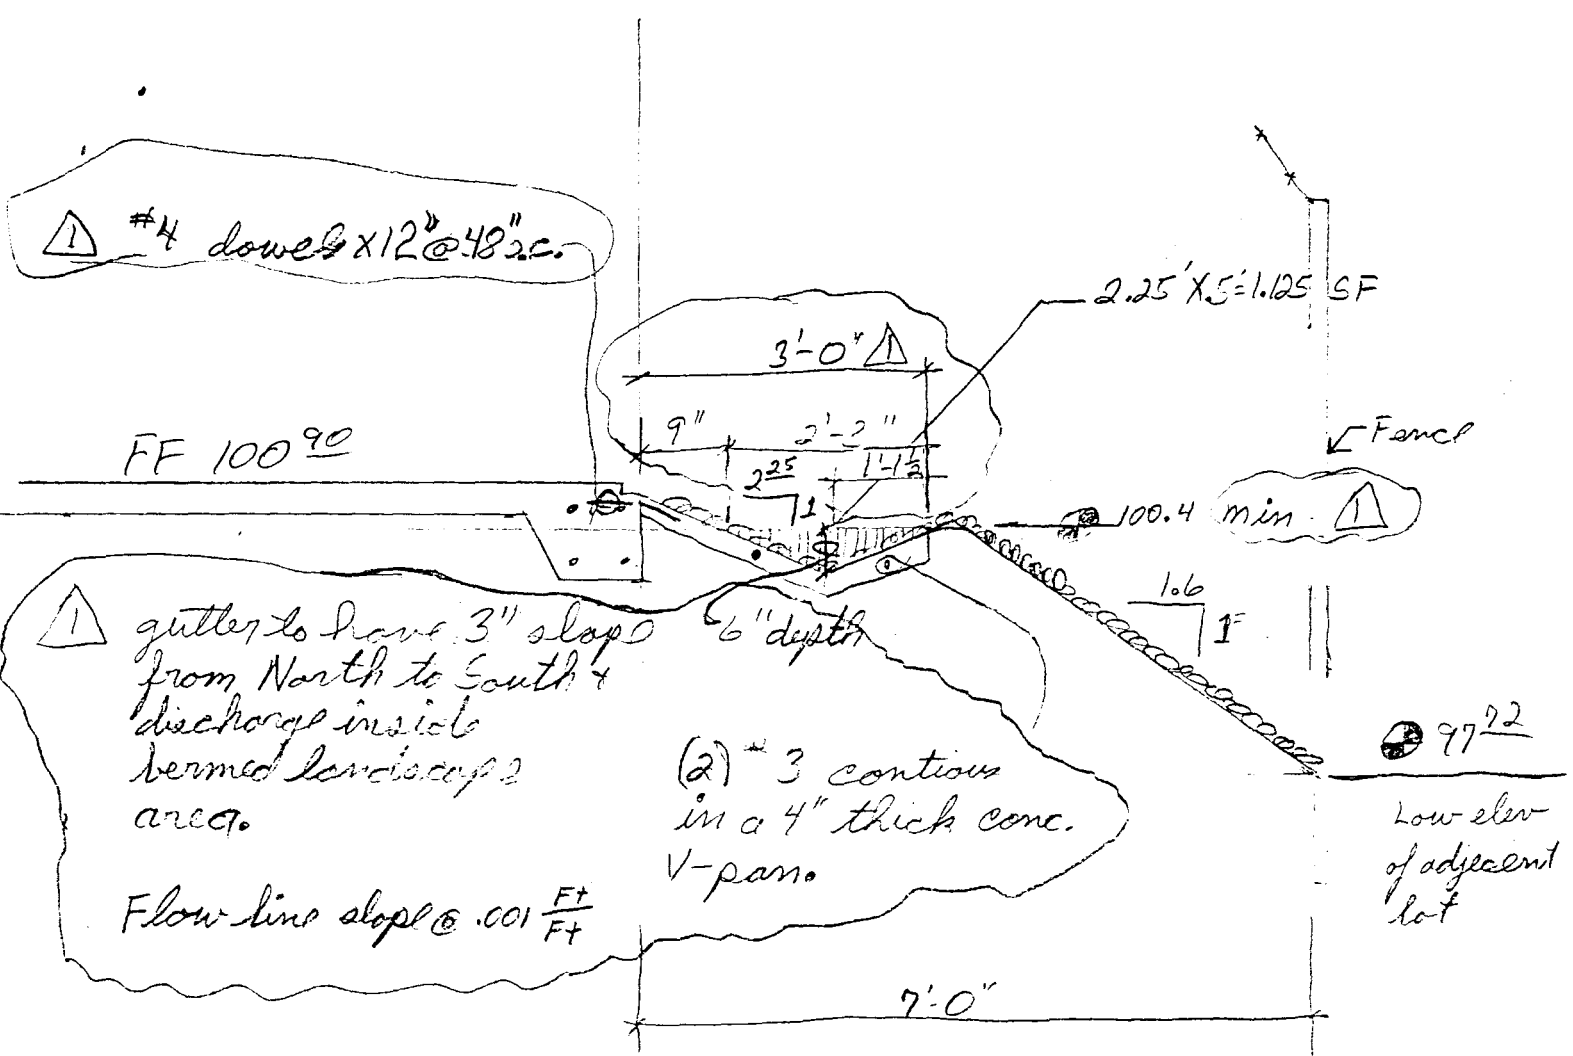 1 #4 dowels x12"@48"o.c.
2.25'X.5'=1.125 SF
3'-0" 1
9"
1'-1½
2 25
1
FF 100 90
Fence
100.4 min. 1
1.6
1
6" depth
1 gutter to have 3" slope
from North to South &
discharge inside
bermed landscape
area.
Flow line slope @ .001 Ft/Ft
(2) #3 contious
in a 4" thick conc.
V-pan.
97 72
Low elev
of adjecent
lot
7'-0"